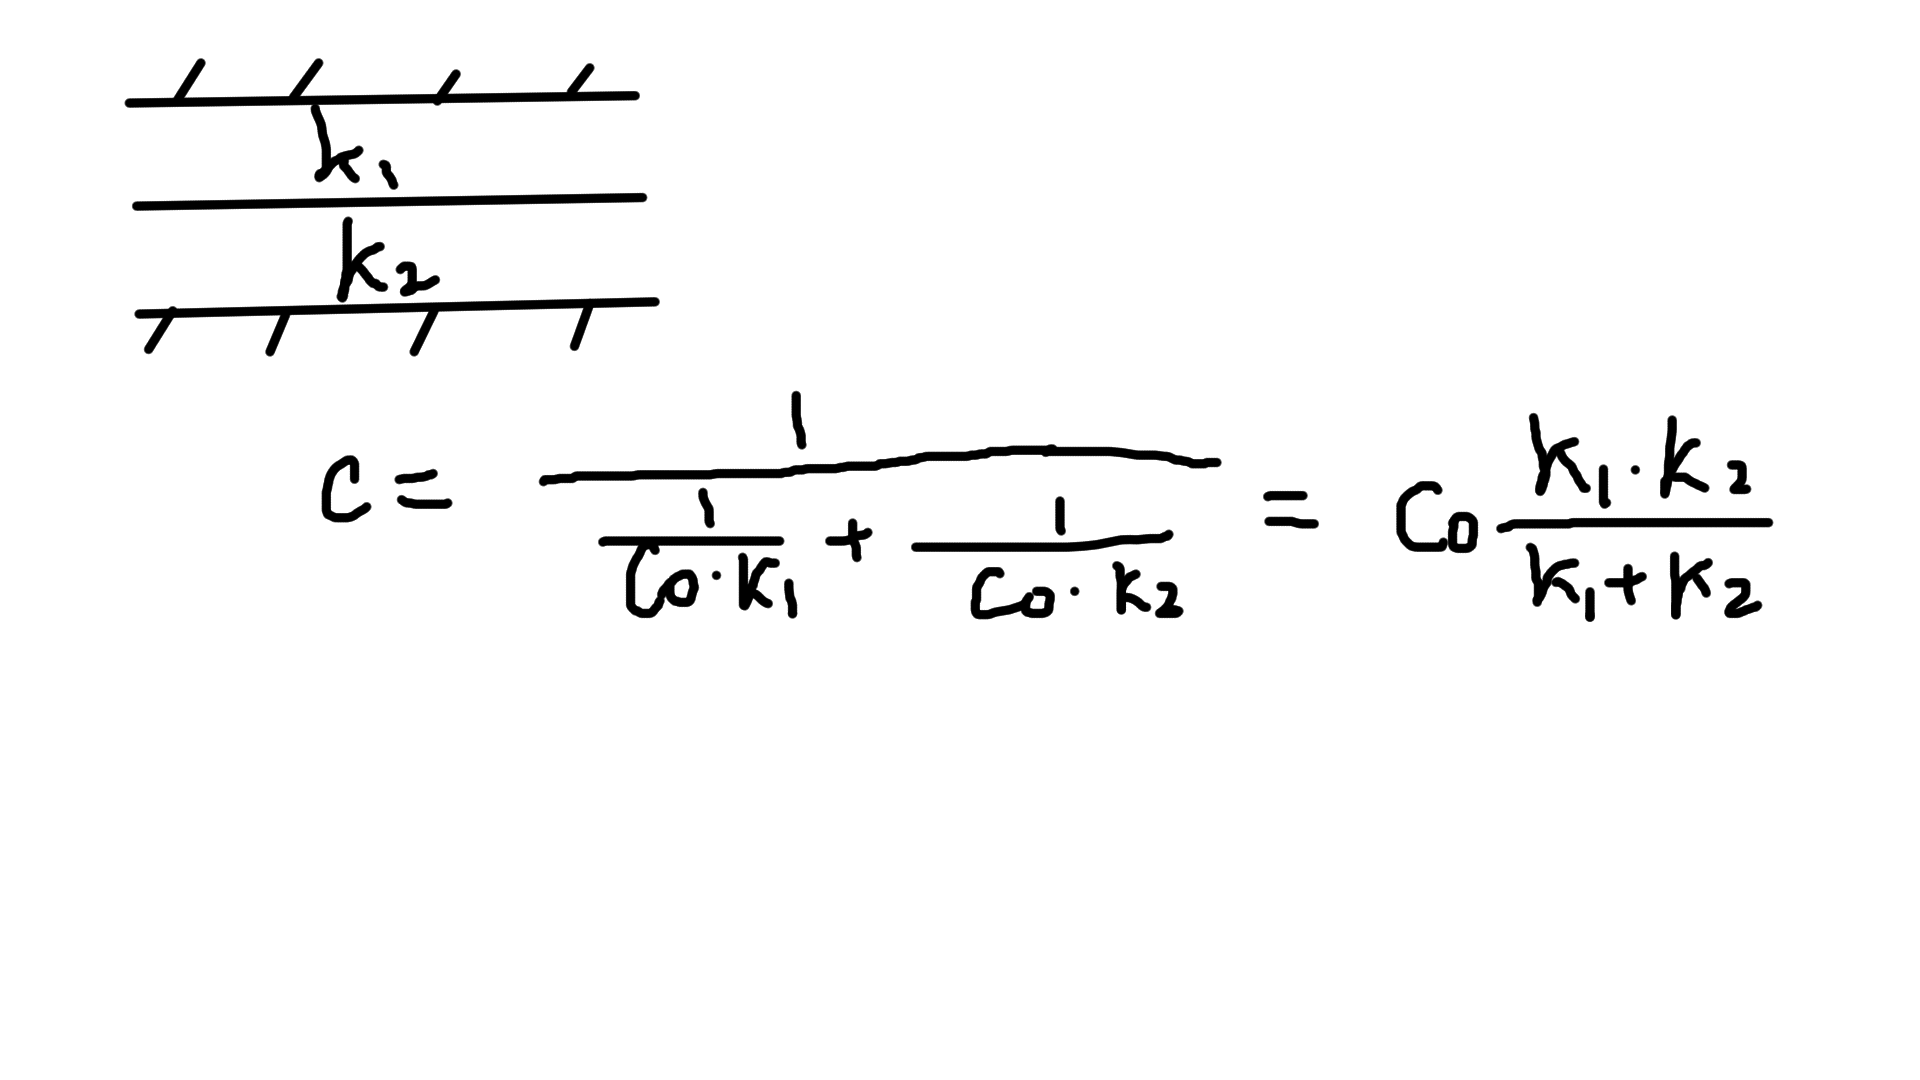 k₁
k₂
C = 1 / (1/(C₀·k₁) + 1/(C₀·k₂)) = C₀ (k₁·k₂)/(k₁+k₂)